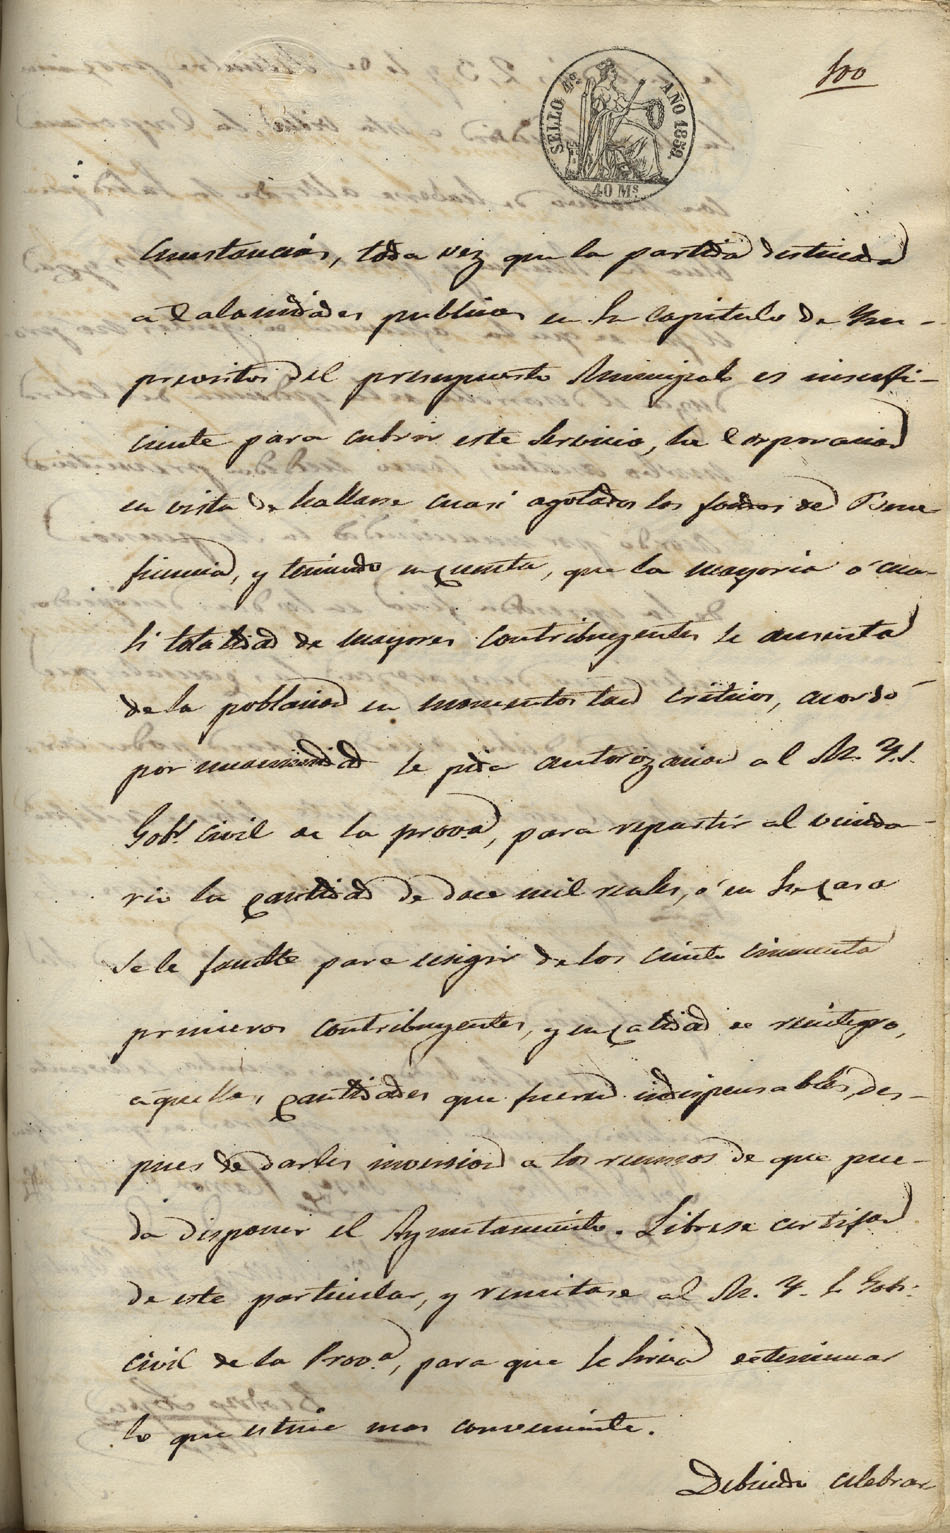 100
SELLO 4º AÑO 1859.
40 Ms.
cunstancias, toda vez que la partida destinada
a Calamidades publicas en su Capitulo de Ym-
previstos del presupuesto Municipal es insufi-
ciente para cubrir este servicio, la Corporacion
en vista de hallarse cuasi agotados los fondos de Bene
ficencia, y teniendo en cuenta, que la mayoria ó cua-
si totalidad de mayores contribuyentes se ausenta
de la poblacion en momentos tan criticos, acordó
por unanimidad se pida autorizacion al M. Y. S.
Gobr. Civil de la prova, para repartir al vecinda-
rio la cantidad de doce mil reales, ó en su caso
se le faculte para exigir de los ciento cincuenta
primeros contribuyentes, y en calidad de reintegro,
aquellas cantidades que fueren indispensables, des-
pues de darles inversion a los recursos de que pue-
da disponer el Ayuntamiento. Librese certifon
de este particular, y remitase al M. Y. S. Gobr.
Civil de la Prova, para que se sirva determinar
lo que estime mas conveniente.
Debiendo celebrar